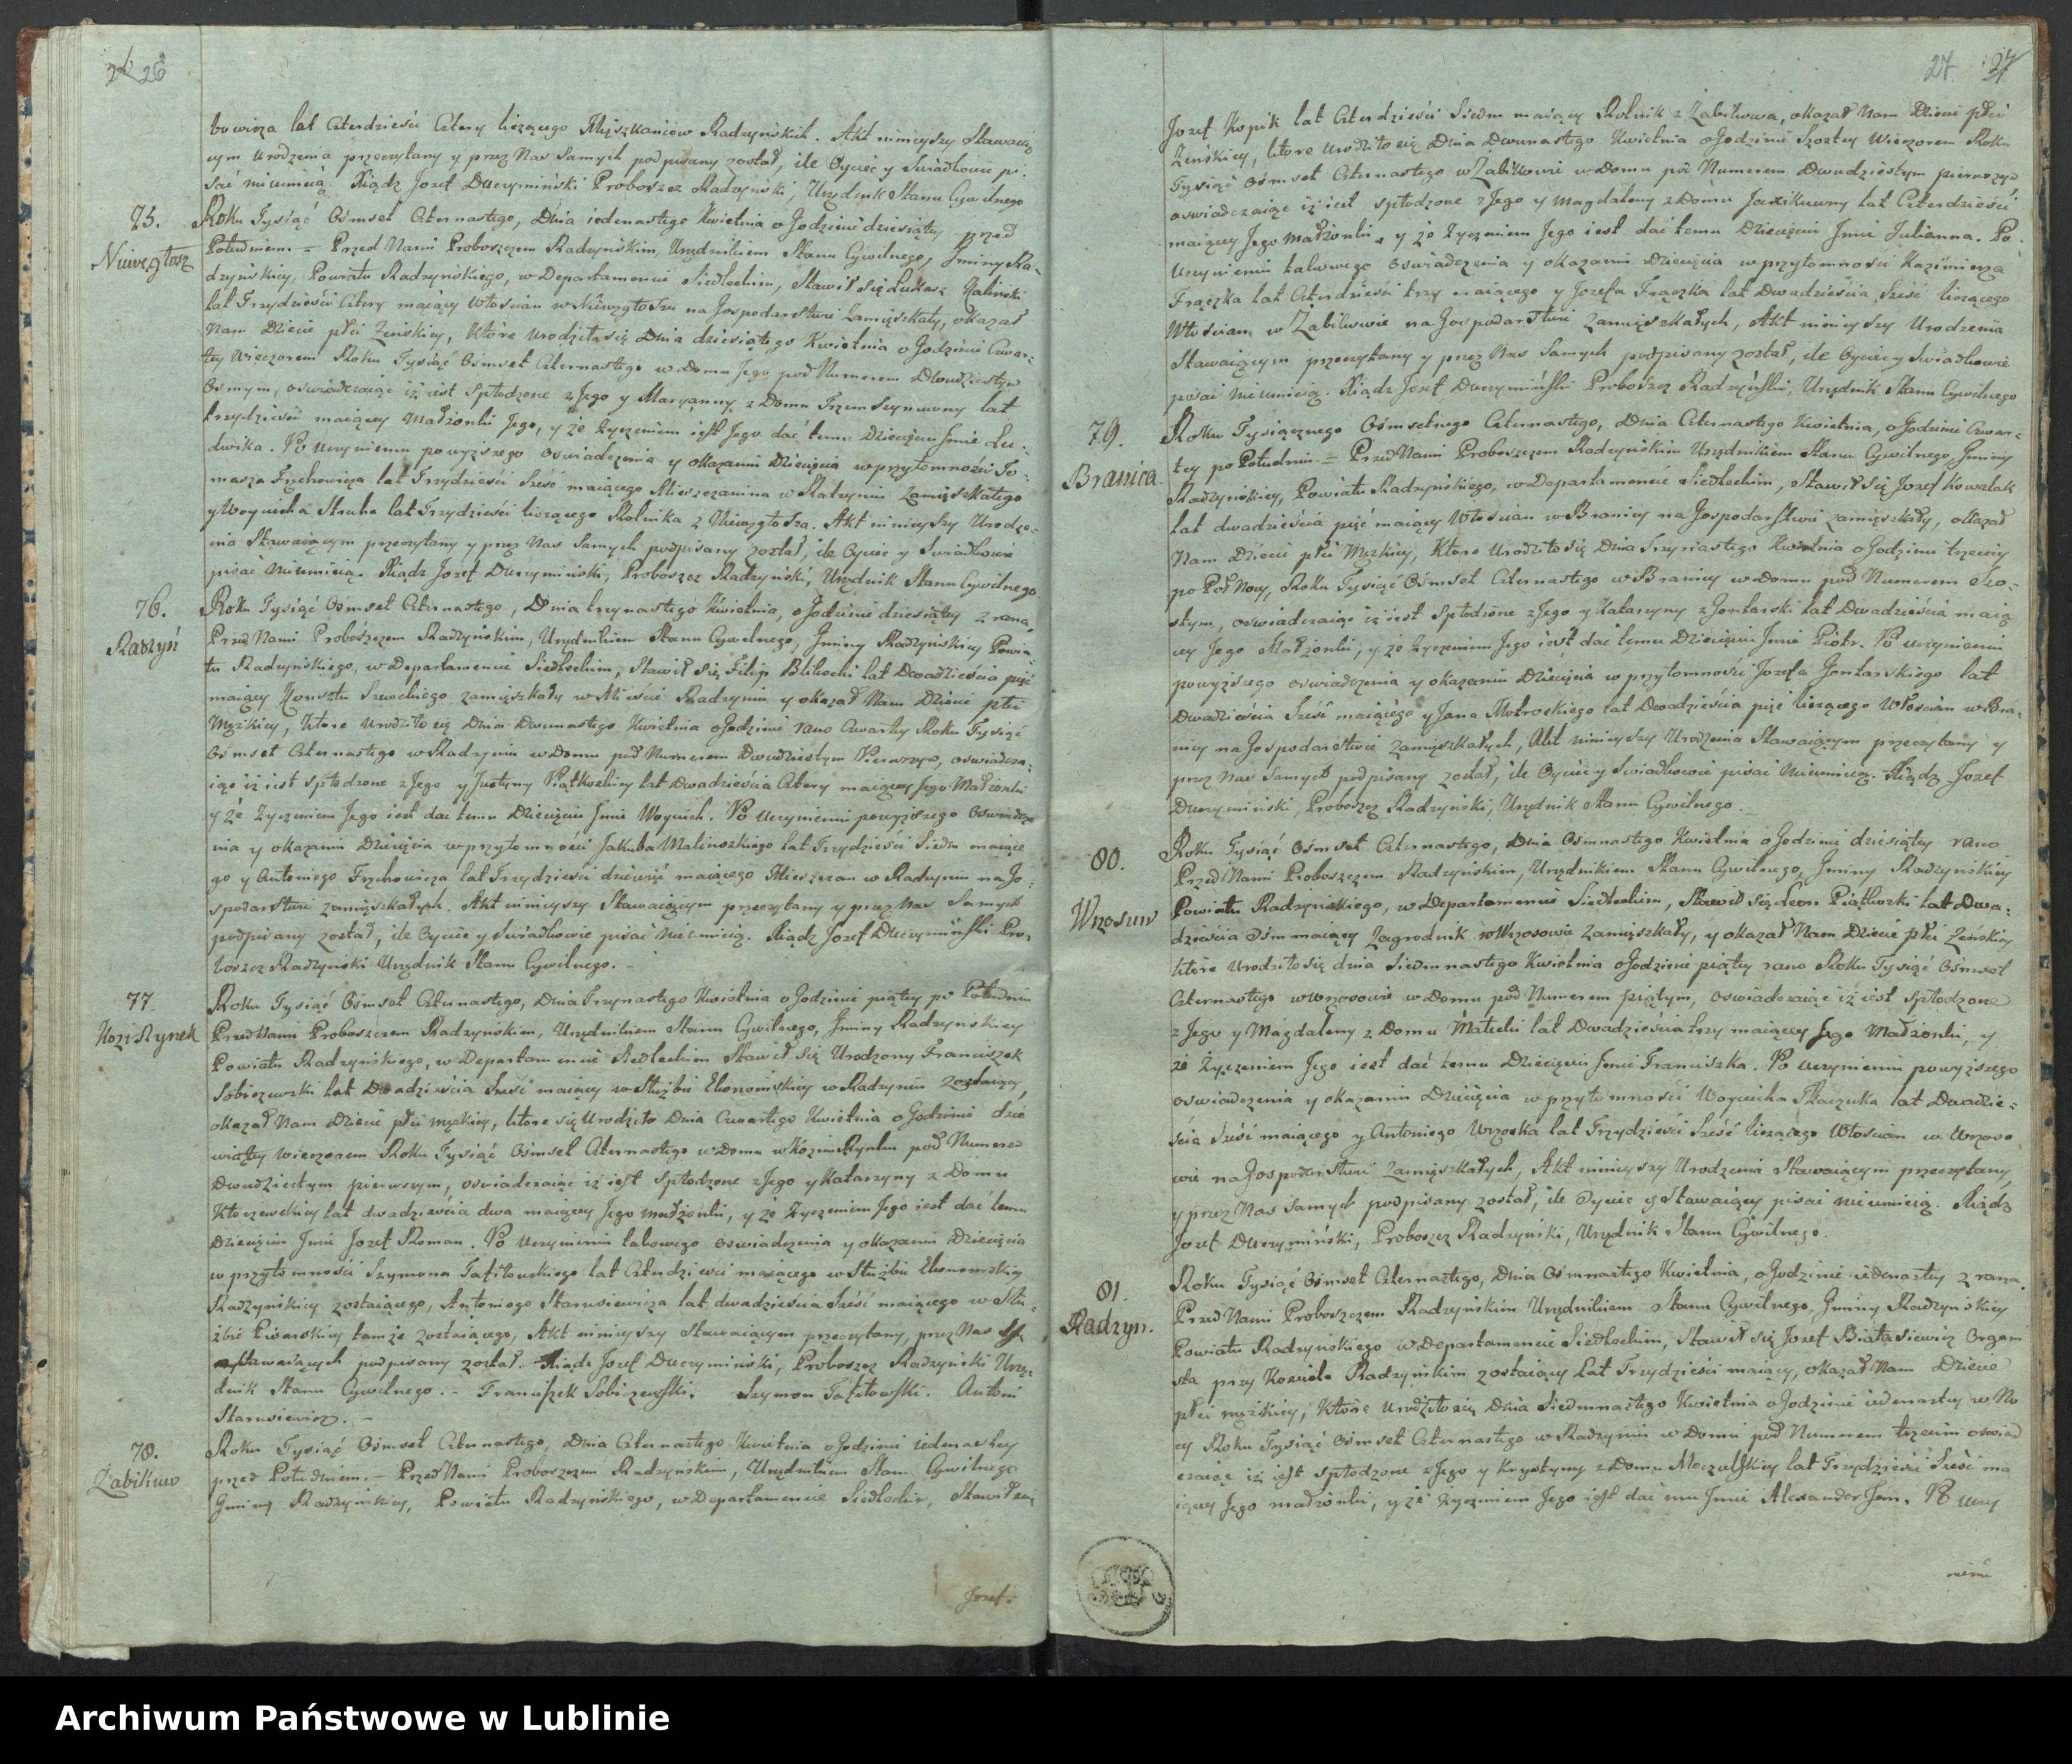 26 26
towicza lat Czterdzieści Cztery liczącego Mięszkańców Radzyńskich. Akt ninieyszy Stawaią
cym Urodzenia przeczytany y przez Nas Samych podpisany został, ile Oyciec y Swiadkowie pi-
sać nieumieią. Xiądz Jozef Duczyminski Proboszcz Radzyński, Urzędnik Stanu Cywilnego
75.
Niewęgłosz
Roku Tysiąć Ośmset Czternastego, Dnia iedenastego Kwietnia o Godzinie dziesiątey przed
Południem. = Przed Nami Proboszczem Radzyńskim, Urzędnikiem Stanu Cywilnego, Gminy Ra-
dzyńskiey, Powiatu Radzynskiego, w Departamencie Siedleckim, Stawił się Łukasz Kaliński
lat Trzydzieści Cztery maiący Włoscian w Niewęgłoszu na Gospodarstwie Zamięszkały, okazał
Nam Dziecie płci Zeńskiey, Które urodziło się Dnia dziesiątego Kwietnia o Godzinie Czwar-
tey Wieczorem Roku Tysiąć Ośmset Czternastego w Domu Jego pod Numerem Dwudziestym
Osmym, oswiadczaiąc iż iest Spłodzone z Jego y Maryanny z Domu lat
trzydzieści maiącey Małżonki Jego, y że życzeniem iest Jego dać temu Dziecięciu Jmie Lu-
dwika. Po Uczynieniu powyższego oswiadczenia y okazaniu Dziecięcia w przytomności To-
masza lat Trzydzieści Sześć maiącego Mieszczanina w Radzyniu Zamięszkałego
y Woyciecha Struka lat Trzydzieści liczącego Rolnika z Niewęgłosza. Akt ninieyszy Urodze-
nia Stawaiącym przeczytany y przez Nas Samych podpisany został, ile Oyciec y Swiadkowie
pisać Nieumieią. Xiądz Jozef Duczyminski, Proboszcz Radzyński, Urzędnik Stanu Cywilnego
76.
Radzyń
Roku Tysiąć Ośmset Czternastego, Dnia trzynastego Kwietnia, o Godzinie dziesiątey z rana
Przed Nami Proboszczem Radzyńskim, Urzędnikiem Stanu Cywilnego, Gminy Radzyńskiey Powia
tu Radzyńskiego, w Departamencie Siedleckim, Stawił się Filip lat Dwadzieścia pięć
maiący Kunsztu Szewckiego zamięszkały w Mieście Radzyniu y okazał Nam Dziecie płci
Męzkiey, które urodziło się Dnia Dwunastego Kwietnia o Godzinie rano Czwartey Roku Tysiąć
Ośmset Czternastego w Radzyniu w Domu pod Numerem Dwudziestym Pierwszym, oswiadcza-
iąc iż iest spłodzone z Jego y Justyny Piątkoskiey lat Dwadzieścia Cztery maiącey Jego Małżonki
y że życzeniem Jego iest dać temu Dziecięciu Jmie Woyciech. Po Uczynieniu powyższego Oswiadcze
nia y okazaniu Dziecięcia w przytomności Jakuba Malinoskiego lat Trzydzieści Siedm maiące
go y Antoniego lat Trzydzieści dziewięć maiącego Mieszczan w Radzyniu na Go-
spodarstwie Zamięszkałych. Akt ninieyszy Stawaiącym przeczytany y przez Nas Samych
podpisany został, ile Oyciec y Swiadkowie pisać Nieumieią. Xiądz Jozef Duczyminski Pro-
boszcz Radzyński Urzędnik Stanu Cywilnego. -
77.
Kozi Rynek
Roku Tysiąć Ośmset Czternastego, Dnia Trzynastego Kwietnia o Godzinie piątey po Południu
Przed Nami Proboszczem Radzyńskim, Urzędnikiem Stanu Cywilnego, Gminy Radzyńskiey
Powiatu Radzyńskiego, w Departamencie Siedleckim Stawił się Urodzony Franciszek
Sobiczewski lat Dwadzieścia Sześć maiący w Służbie Ekonomskiey w Radzyniu zostaiący,
okazał Nam Dziecie płci męzkiey, które się Urodziło Dnia Czwartego Kwietnia o Godzinie dzie
wiątey wieczorem Roku Tysiąć Ośmset Czternastego w Domu w Kozim Rynku pod Numerem
Dwudziestym pierwszym, oswiadczaiąc iż iest Spłodzone z Jego y Katarzyny z Domu
lat dwadzieścia dwa maiącey Jego małżonki, y że życzeniem Jego iest dać temu
Dziecięciu Jmie Jozef Roman. Po Uczynieniu takowego oswiadczenia y okazaniu Dziecięcia
w przytomności Szymona Tafiłowskiego lat Czterdzieści maiącego w Służbie Ekonomskiey
Radzyńskiey zostaiącego, Antoniego Starusiewicza lat dwadzieścia Sześć maiącego w Słu-
żbie Pisarskiey tamże zostaiącego, Akt ninieyszy Stawaiącym przeczytany, przez Nas y
Stawaiących podpisany został. Xiądz Jozef Duczyminski, Proboszcz Radzyński Urzę-
dnik Stanu Cywilnego. - Franciszek Sobiczewski. Szymon Tafiłowski. Antoni
Starusiewicz. -
78.
Żabikow
Roku Tysiąć Ośmset Czternastego, Dnia Czternastego Kwietnia o Godzinie iedenastey
przed Południem. - Przed Nami Proboszczem Radzyńskim, Urzędnikiem Stanu Cywilnego
Gminy Radzyńskiey, Powiatu Radzyńskiego, w Departamencie Siedleckim, Stawił się
Jozef.
27 27
Jozef Kopik lat Czterdzieści Siedm maiący Rolnik z Zabikowa, okazał Nam Dziecie płci
Zeńskiey, które urodziło się Dnia Dwunastego Kwietnia o Godzinie Szostey Wieczorem Roku
Tysiąć Ośmset Czternastego w Zabikowie w Domu pod Numerem Dwudziestym pierwszym
oswiadczaiąc iż iest spłodzone z Jego y Magdaleny z Domu lat Czterdzieści
maiącey Jego Małżonki, y że życzeniem Jego iest dać temu Dziecięciu Jmie Julianna. Po
Uczynieniu takowego oswiadczenia y okazaniu Dziecięcia w przytomności Kazimierza
Frączka lat Czterdzieści trzy maiącego y Jozefa Frączka lat Dwadzieścia Sześć liczącego
Włoscian w Zabikowie na Gospodarstwie Zamięszkałych, Akt ninieyszy Urodzenia
Stawaiącym przeczytany y przez Nas Samych podpisany został, ile Oyciec y Swiadkowie
pisać Nieumieią. Xiądz Jozef Duczyminski Proboszcz Radzyński, Urzędnik Stanu Cywilnego
79.
Branica.
Roku Tysiącznego Ośmsetnego Czternastego, Dnia Czternastego Kwietnia, o Godzinie Czwar-
tey po Południu. = Przed Nami Proboszczem Radzyńskim Urzędnikiem Stanu Cywilnego, Gminy
Radzyńskiey, Powiatu Radzyńskiego, w Departamencie Siedleckim, Stawił się Jozef Kowalak
lat dwadzieścia pięć maiący Włoscian w Branicy na Gospodarstwie zamięszkały, okazał
Nam Dziecie płci Męzkiey, Które Urodziło się Dnia Trzynastego Kwietnia o Godzinie trzeciey
po Poł Nocy, Roku Tysiąć Ośmset Czternastego w Branicy w Domu pod Numerem Szo-
stym, oswiadczaiąc iż iest Spłodzone z Jego y Katarzyny z Gontarski lat Dwadzieścia maią
cey Jego Małżonki, y że życzeniem Jego iest dać temu Dziecięciu Jmie Piotr. Po uczynieniu
powyższego oswiadczenia y okazaniu Dziecięcia w przytomności Jozefa Gontarskiego lat
Dwadzieścia Sześć maiącego y Jana Mokroskiego lat Dwadzieścia pięć liczącego Włoscian w Bra-
nicy na Gospodarstwie zamięszkałych, Akt ninieyszy Urodzenia Stawaiącym przeczytany y
przez Nas Samych podpisany został, ile Oyciec y Swiadkowie pisać Nieumieią. Xiądz Jozef
Duczyminski, Proboszcz Radzyński, Urzędnik Stanu Cywilnego. -
80.
Wrzosow
Roku Tysiąć Ośmset Czternastego, Dnia Ośmnastego Kwietnia o Godzinie dziesiątey rano
Przed Nami Proboszczem Radzyńskim, Urzędnikiem Stanu Cywilnego, Gminy Radzyńskiey
Powiatu Radzyńskiego, w Departamencie Siedleckim, Stawił się Leon Piątkoski lat Dwa-
dzieścia ośm maiący Zagrodnik w Wrzosowie Zamięszkały, y okazał Nam Dziecie płci Zeńskiey
które Urodziło się dnia Siedmnastego Kwietnia o Godzinie piątey rano Roku Tysiąć Ośmset
Czternastego w Wrzosowie w Domu pod Numerem piątym, oswiadczaiąc iż iest Spłodzone
z Jego y Magdaleny z Domu lat Dwadzieścia trzy maiącey Jego Małżonki, y
że życzeniem Jego iest dać temu Dziecięciu Jmie Franciszka. Po uczynieniu powyższego
oswiadczenia y okazaniu Dziecięcia w przytomności Woyciecha Tkaczuka lat Dwadzie-
ścia Sześć maiącego y Antoniego Wrzoska lat Trzydzieści Sześć liczącego Włoscian w Wrzoso
wie na Gospodarstwie Zamięszkałych, Akt ninieyszy Urodzenia Stawaiącym przeczytany,
y przez Nas Samych podpisany został, ile Oyciec y Stawaiący pisać nieumieią. Xiądz
Jozef Duczyminski, Proboszcz Radzyński, Urzędnik Stanu Cywilnego.
81.
Radzyn.
Roku Tysiąć Ośmset Czternastego, Dnia Ośmnastego Kwietnia, o Godzinie iedenastey z rana.
Przed Nami Proboszczem Radzyńskim Urzędnikiem Stanu Cywilnego, Gminy Radzyńskiey
Powiatu Radzyńskiego w Departamencie Siedleckim, Stawił się Jozef Białasiewicz Organi
sta przy Kosciele Radzyńskim zostaiący Lat Trzydzieści maiący, okazał Nam Dziecie
płci męzkiey, Które Urodziło się Dnia Siedmnastego Kwietnia o Godzinie iedenastey w No
cy Roku Tysiąć Ośmset Czternastego w Radzyniu w Domu pod Numerem trzecim oswiad
czaiąc iż iest spłodzone z Jego y Krystyny z Domu Moczulskiey lat Trzydzieści Sześć ma
iącey Jego małżonki, y że życzeniem Jego iest dać mu Jmie Alexander Jan. Po uczy
nieniu
Archiwum Państwowe w Lublinie